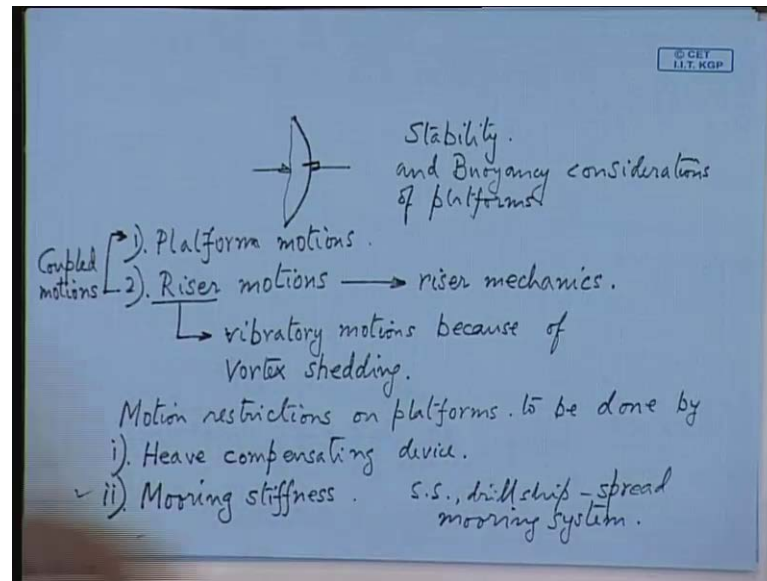 © CET
I.I.T. KGP
Stability.
and Buoyancy considerations
of platforms
1). Platform motions.
Coupled motions
2). Riser motions → riser mechanics.
→ vibratory motions because of
Vortex shedding.
Motion restrictions on platforms. to be done by
i). Heave compensating device.
ii). Mooring stiffness. S.S., drillship - spread
mooring system.